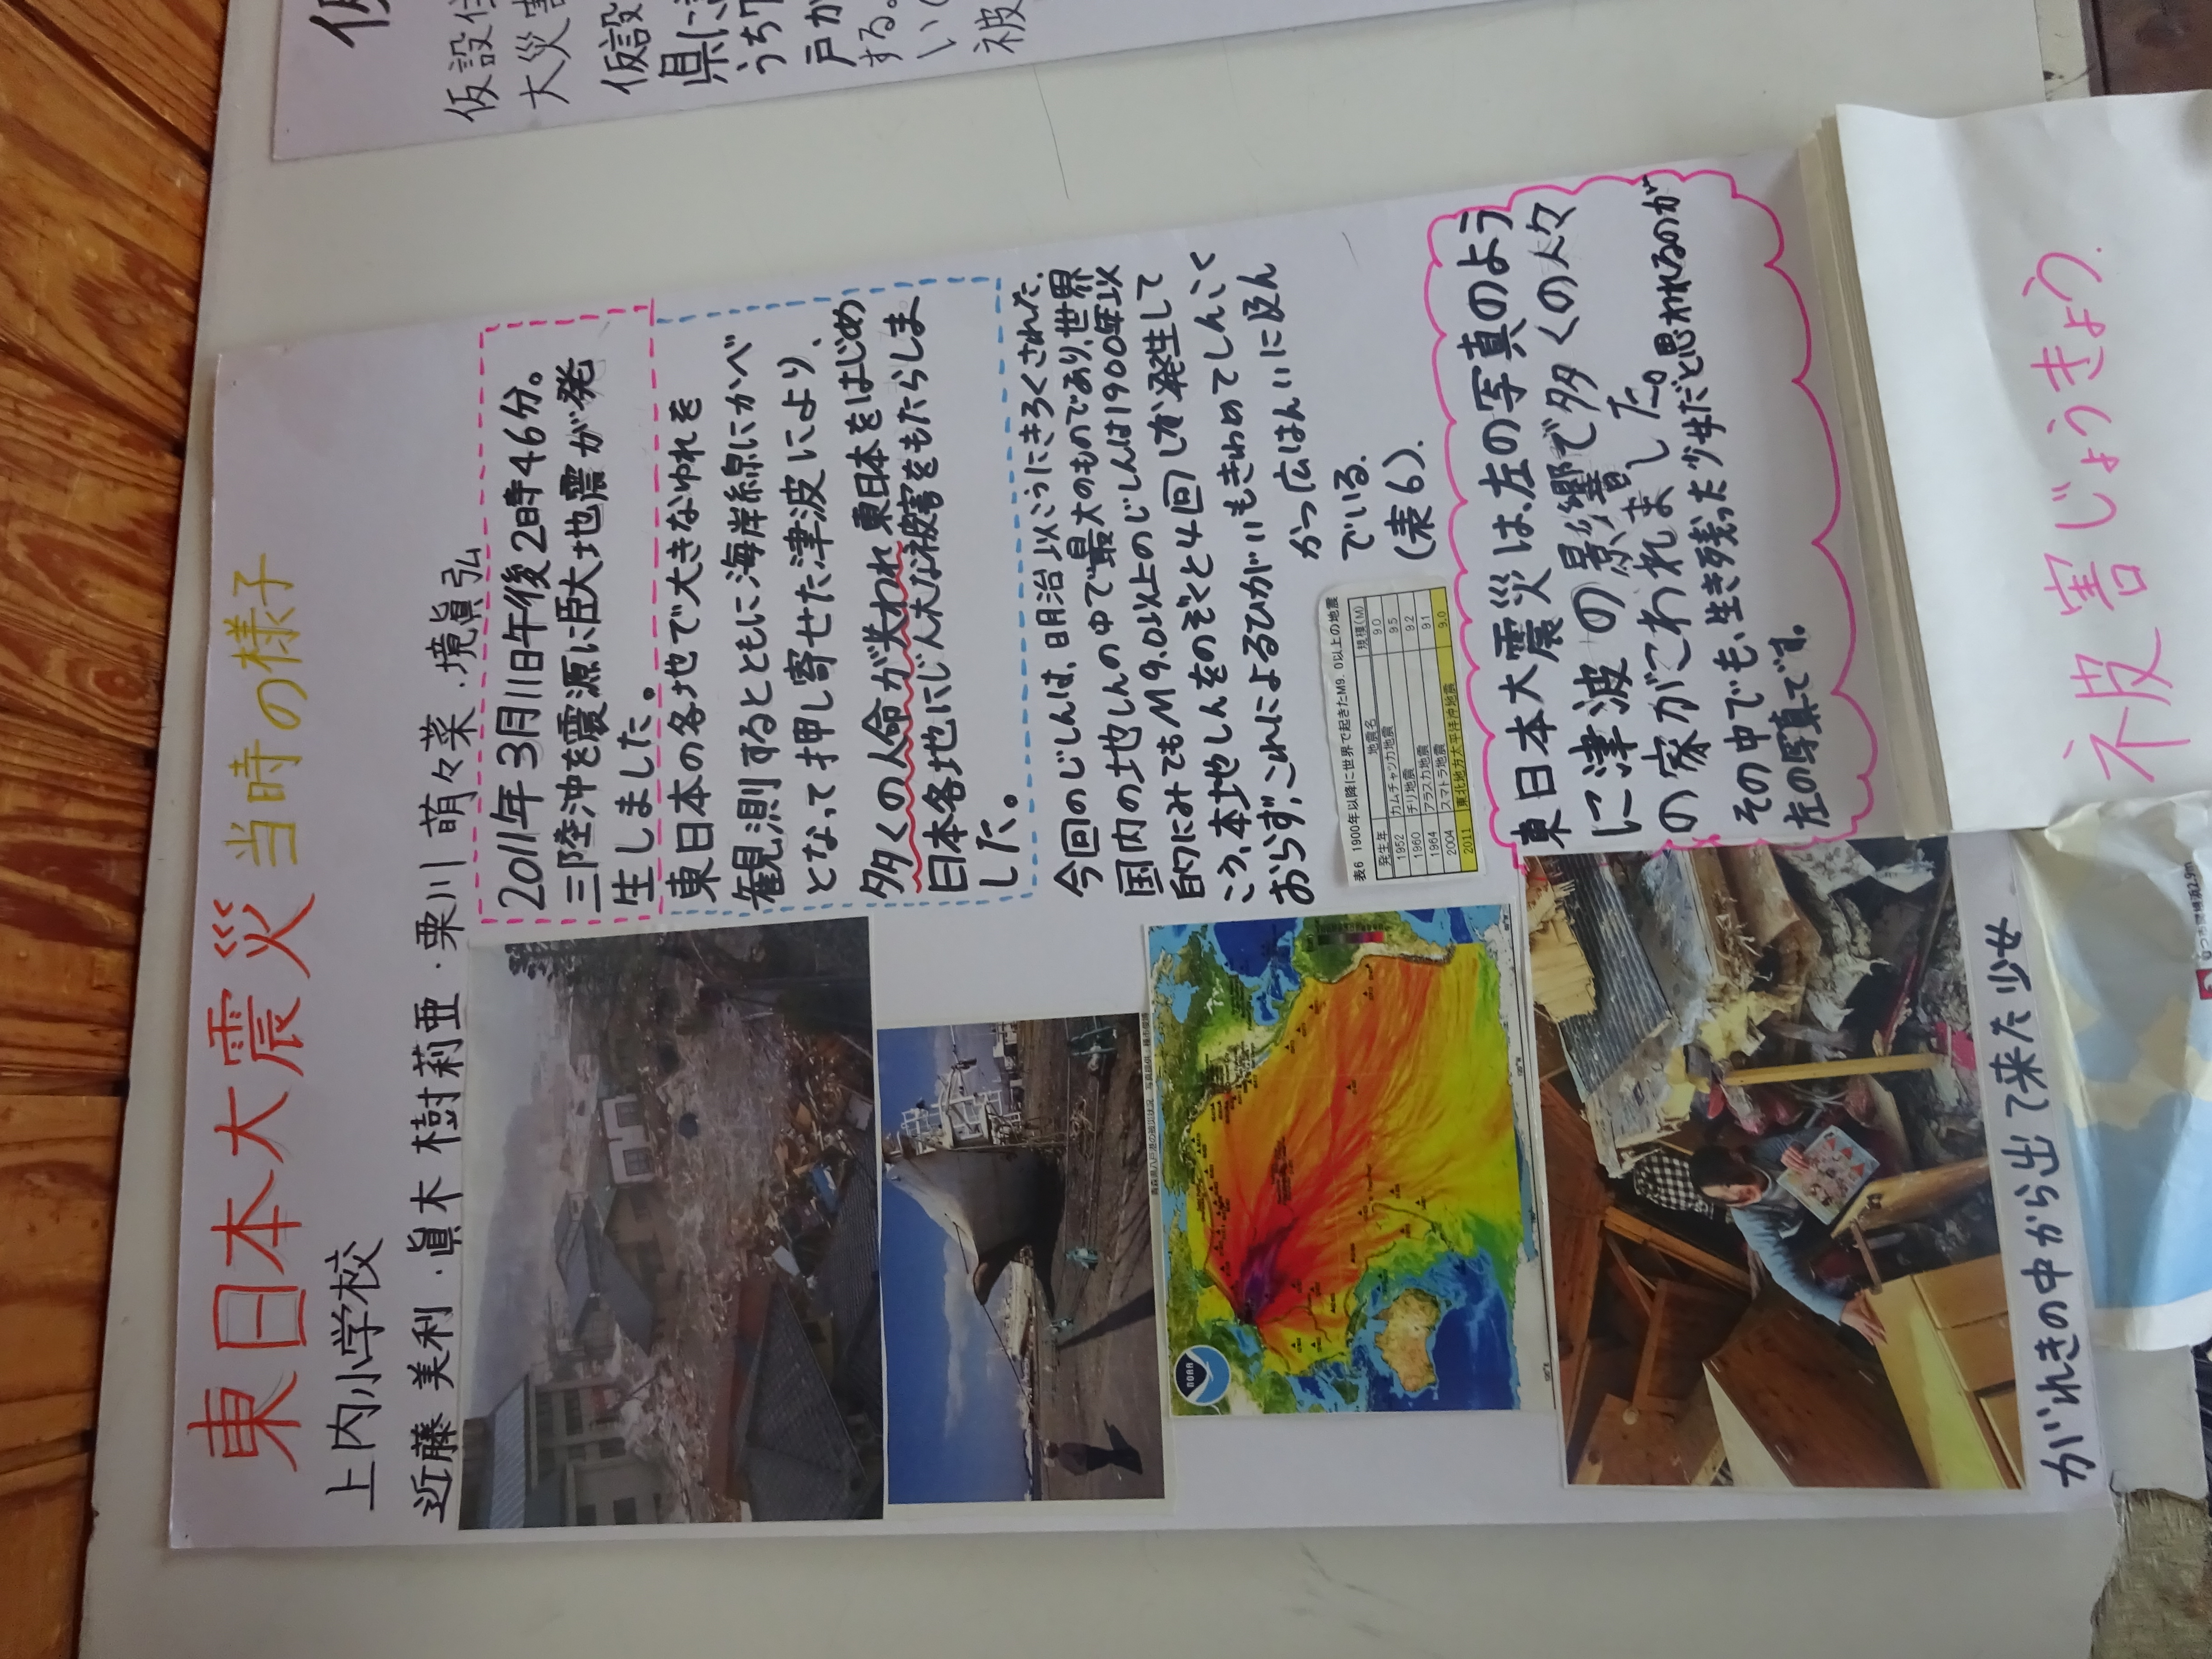 東日本大震災 当時の様子
上内小学校
近藤 美利・眞木 樹莉亜・栗川 萌々菜・境眞弘
2011年3月11日午後2時46分。
三陸沖を震源に臣大地震が発
生しました。
東日本の各地で大きなゆれを
観測するとともに海岸線にかべ
となって押し寄せた津波により、
多くの人命が失われ東日本をはじめ
日本各地にじん大な被害をもたらしま
した。
今回のじしんは、明治以こうにきろくされた.
国内の地しんの中で最大のものであり、世界
的にみてもM9.0以上のじしんは1900年以
こう、本地しんをのぞくと4回しか発生して
おらず、これによるひがいもきわめてしんこく
かつ広はんいに及ん
でいる.
(表6).
表6 1900年以降に世界で起きたM9.0以上の地震
発生年 地震名 規模(M)
1952 カムチャッカ地震 9.0
1960 チリ地震 9.5
1964 アラスカ地震 9.2
2004 スマトラ地震 9.1
2011 東北地方太平洋沖地震 9.0
青森県八戸港の被災状況
NOAA
東日本大震災は、左の写真のよう
に津波の影響で多くの人々
の家がこわれました。
その中でも、生き残った少女だと思われるのが
左の写真です。
がれきの中から出て来た少女
被害じょうきょう.
仮設住
大災害
仮設
県に
うち
戸か
する。
い(
被